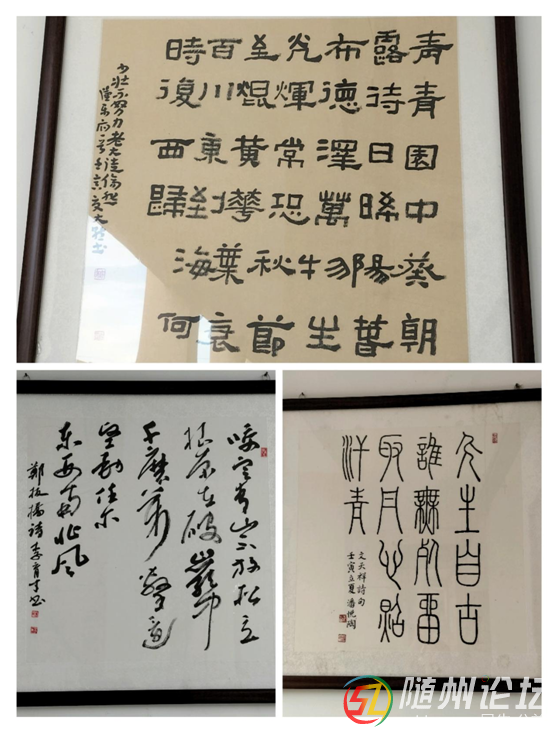 青青園中葵朝
露待日晞陽春
布德澤萬物生
光輝常恐秋節
至焜黃華葉衰
百川東到海何
時復西歸
少壯不努力老大徒傷悲
漢樂府一首壬寅夏
咬定青山不放松立
根原在破巖中
千磨萬擊還
堅勁任尔
東西南北风
鄭板橋詩李育书
人生自古
誰無死留
取丹心照
汗青
文天祥詩句
壬寅立夏潘悦陶
随州论坛